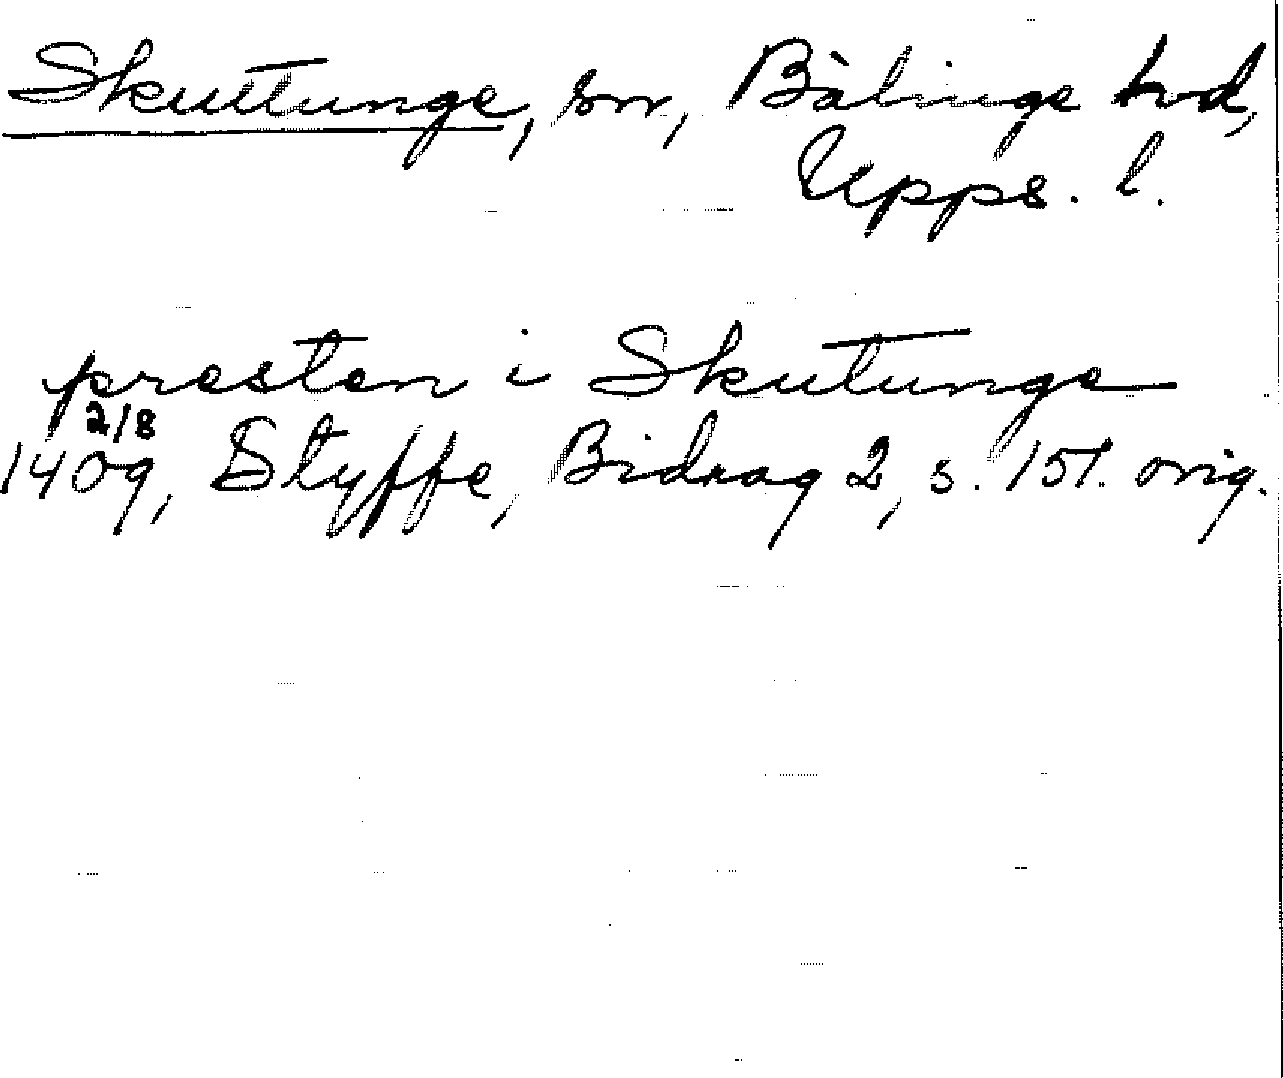 Skuttunge, sn, Bälinge hd,
Upps. l.
presten i Skutunge
2/8
1409, Styffe, Bidrag 2, s. 151. orig.